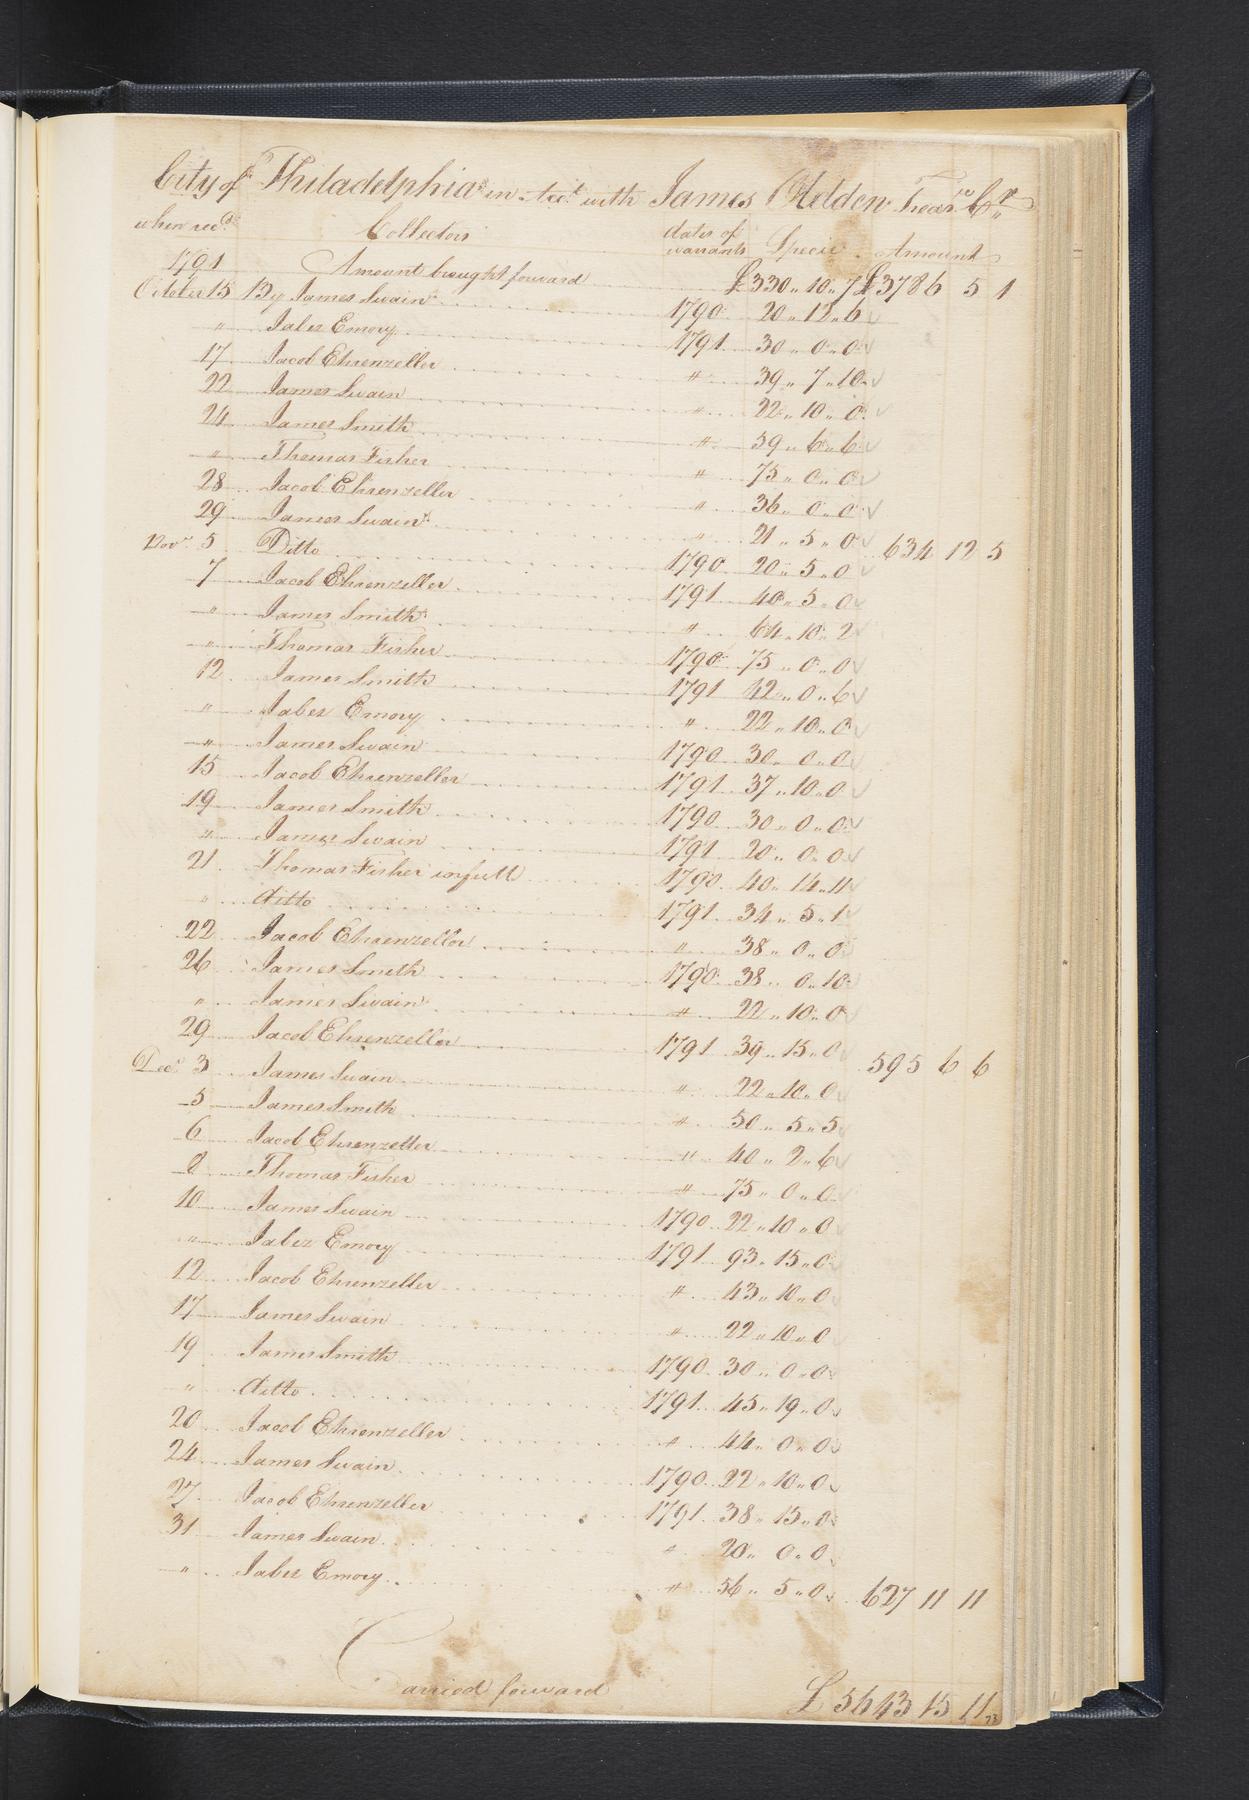 City of Philadelphia in Acct with James Helden Treasr Cr
when recd Collectors dates of warrants Specie Amount
1791 Amount brought forward £330 .. 10 .. 7 £3786 5 1
October 15 By James Swain 1790 20 .. 12 .. 6
" Jabez Emory 1791 30 .. 0 .. 0
17 Jacob Ehrenzeller " 39 .. 7 .. 10
22 James Swain " 22 .. 10 .. 0
24 James Smith " 59 .. 6 .. 6
" Thomas Fisher " 75 .. 0 .. 0
28 Jacob Ehrenzeller " 36 .. 0 .. 0
29 James Swain " 21 .. 5 .. 0 634 12 5
Novr 5 Ditto 1790 20 .. 5 .. 0
7 Jacob Ehrenzeller 1791 40 .. 5 .. 0
" James Smith " 64 .. 10 .. 2
" Thomas Fisher 1790 75 .. 0 .. 0
12 James Smith 1791 42 .. 0 .. 6
" Jabez Emory " 22 .. 10 .. 0
" James Swain 1790 30 .. 0 .. 0
15 Jacob Ehrenzeller 1791 37 .. 10 .. 0
19 James Smith 1790 30 .. 0 .. 0
" James Swain 1791 20 .. 0 .. 0
21 Thomas Fisher in full 1790 40 .. 14 .. 11
" ditto 1791 34 .. 5 .. 1
22 Jacob Ehrenzeller " 38 .. 0 .. 0
26 James Smith 1790 38 .. 0 .. 10
" James Swain " 22 .. 10 .. 0
29 Jacob Ehrenzeller 1791 39 .. 15 .. 0 595 6 6
Decr 3 James Swain " 22 .. 10 .. 0
5 James Smith " 50 .. 5 .. 5
6 Jacob Ehrenzeller " 40 .. 2 .. 6
8 Thomas Fisher " 75 .. 0 .. 0
10 James Swain 1790 22 .. 10 .. 0
" Jabez Emory 1791 93 .. 15 .. 0
12 Jacob Ehrenzeller " 43 .. 10 .. 0
17 James Swain " 22 .. 10 .. 0
19 James Smith 1790 30 .. 0 .. 0
" ditto 1791 45 .. 19 .. 0
20 Jacob Ehrenzeller " 44 .. 0 .. 0
24 James Swain 1790 22 .. 10 .. 0
27 Jacob Ehrenzeller 1791 38 .. 15 .. 0
31 James Swain " 20 .. 0 .. 0
" Jabez Emory " 56 .. 5 .. 0 627 11 11
Carried forward £5643 15 11
73